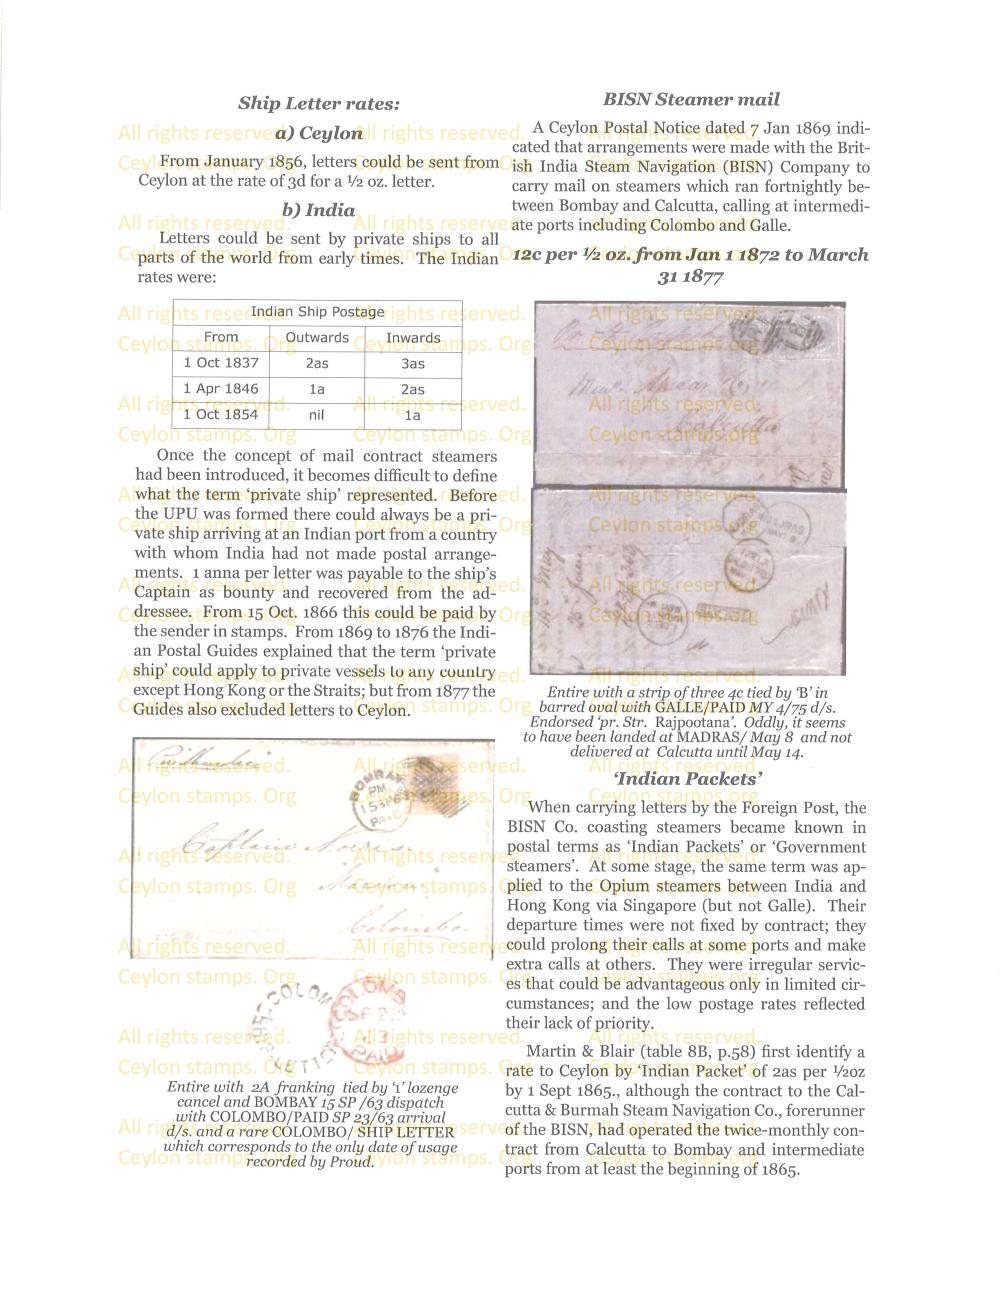 Ship Letter rates:
a) Ceylon
From January 1856, letters could be sent from
Ceylon at the rate of 3d for a ½ oz. letter.
b) India
Letters could be sent by private ships to all
parts of the world from early times. The Indian
rates were:
Indian Ship Postage
From Outwards Inwards
1 Oct 1837 2as 3as
1 Apr 1846 1a 2as
1 Oct 1854 nil 1a
Once the concept of mail contract steamers
had been introduced, it becomes difficult to define
what the term ‘private ship’ represented. Before
the UPU was formed there could always be a pri-
vate ship arriving at an Indian port from a country
with whom India had not made postal arrange-
ments. 1 anna per letter was payable to the ship’s
Captain as bounty and recovered from the ad-
dressee. From 15 Oct. 1866 this could be paid by
the sender in stamps. From 1869 to 1876 the Indi-
an Postal Guides explained that the term ‘private
ship’ could apply to private vessels to any country
except Hong Kong or the Straits; but from 1877 the
Guides also excluded letters to Ceylon.
BOMBAY
PM
15 SP 63
PAID
Captain Norris
Colombo
COLOMBO
SHIP LETTER
COLOMBO
SP 23
63
PAID
Entire with 2A franking tied by ‘1’ lozenge
cancel and BOMBAY 15 SP /63 dispatch
with COLOMBO/PAID SP 23/63 arrival
d/s. and a rare COLOMBO/ SHIP LETTER
which corresponds to the only date of usage
recorded by Proud.
BISN Steamer mail
A Ceylon Postal Notice dated 7 Jan 1869 indi-
cated that arrangements were made with the Brit-
ish India Steam Navigation (BISN) Company to
carry mail on steamers which ran fortnightly be-
tween Bombay and Calcutta, calling at intermedi-
ate ports including Colombo and Galle.
12c per ½ oz. from Jan 1 1872 to March
31 1877
Calcutta
Entire with a strip of three 4c tied by ‘B’ in
barred oval with GALLE/PAID MY 4/75 d/s.
Endorsed ‘pr. Str. Rajpootana’. Oddly, it seems
to have been landed at MADRAS/ May 8 and not
delivered at Calcutta until May 14.
‘Indian Packets’
When carrying letters by the Foreign Post, the
BISN Co. coasting steamers became known in
postal terms as ‘Indian Packets’ or ‘Government
steamers’. At some stage, the same term was ap-
plied to the Opium steamers between India and
Hong Kong via Singapore (but not Galle). Their
departure times were not fixed by contract; they
could prolong their calls at some ports and make
extra calls at others. They were irregular servic-
es that could be advantageous only in limited cir-
cumstances; and the low postage rates reflected
their lack of priority.
Martin & Blair (table 8B, p.58) first identify a
rate to Ceylon by ‘Indian Packet’ of 2as per ½oz
by 1 Sept 1865., although the contract to the Cal-
cutta & Burmah Steam Navigation Co., forerunner
of the BISN, had operated the twice-monthly con-
tract from Calcutta to Bombay and intermediate
ports from at least the beginning of 1865.
All rights reserved.
Ceylon stamps. Org